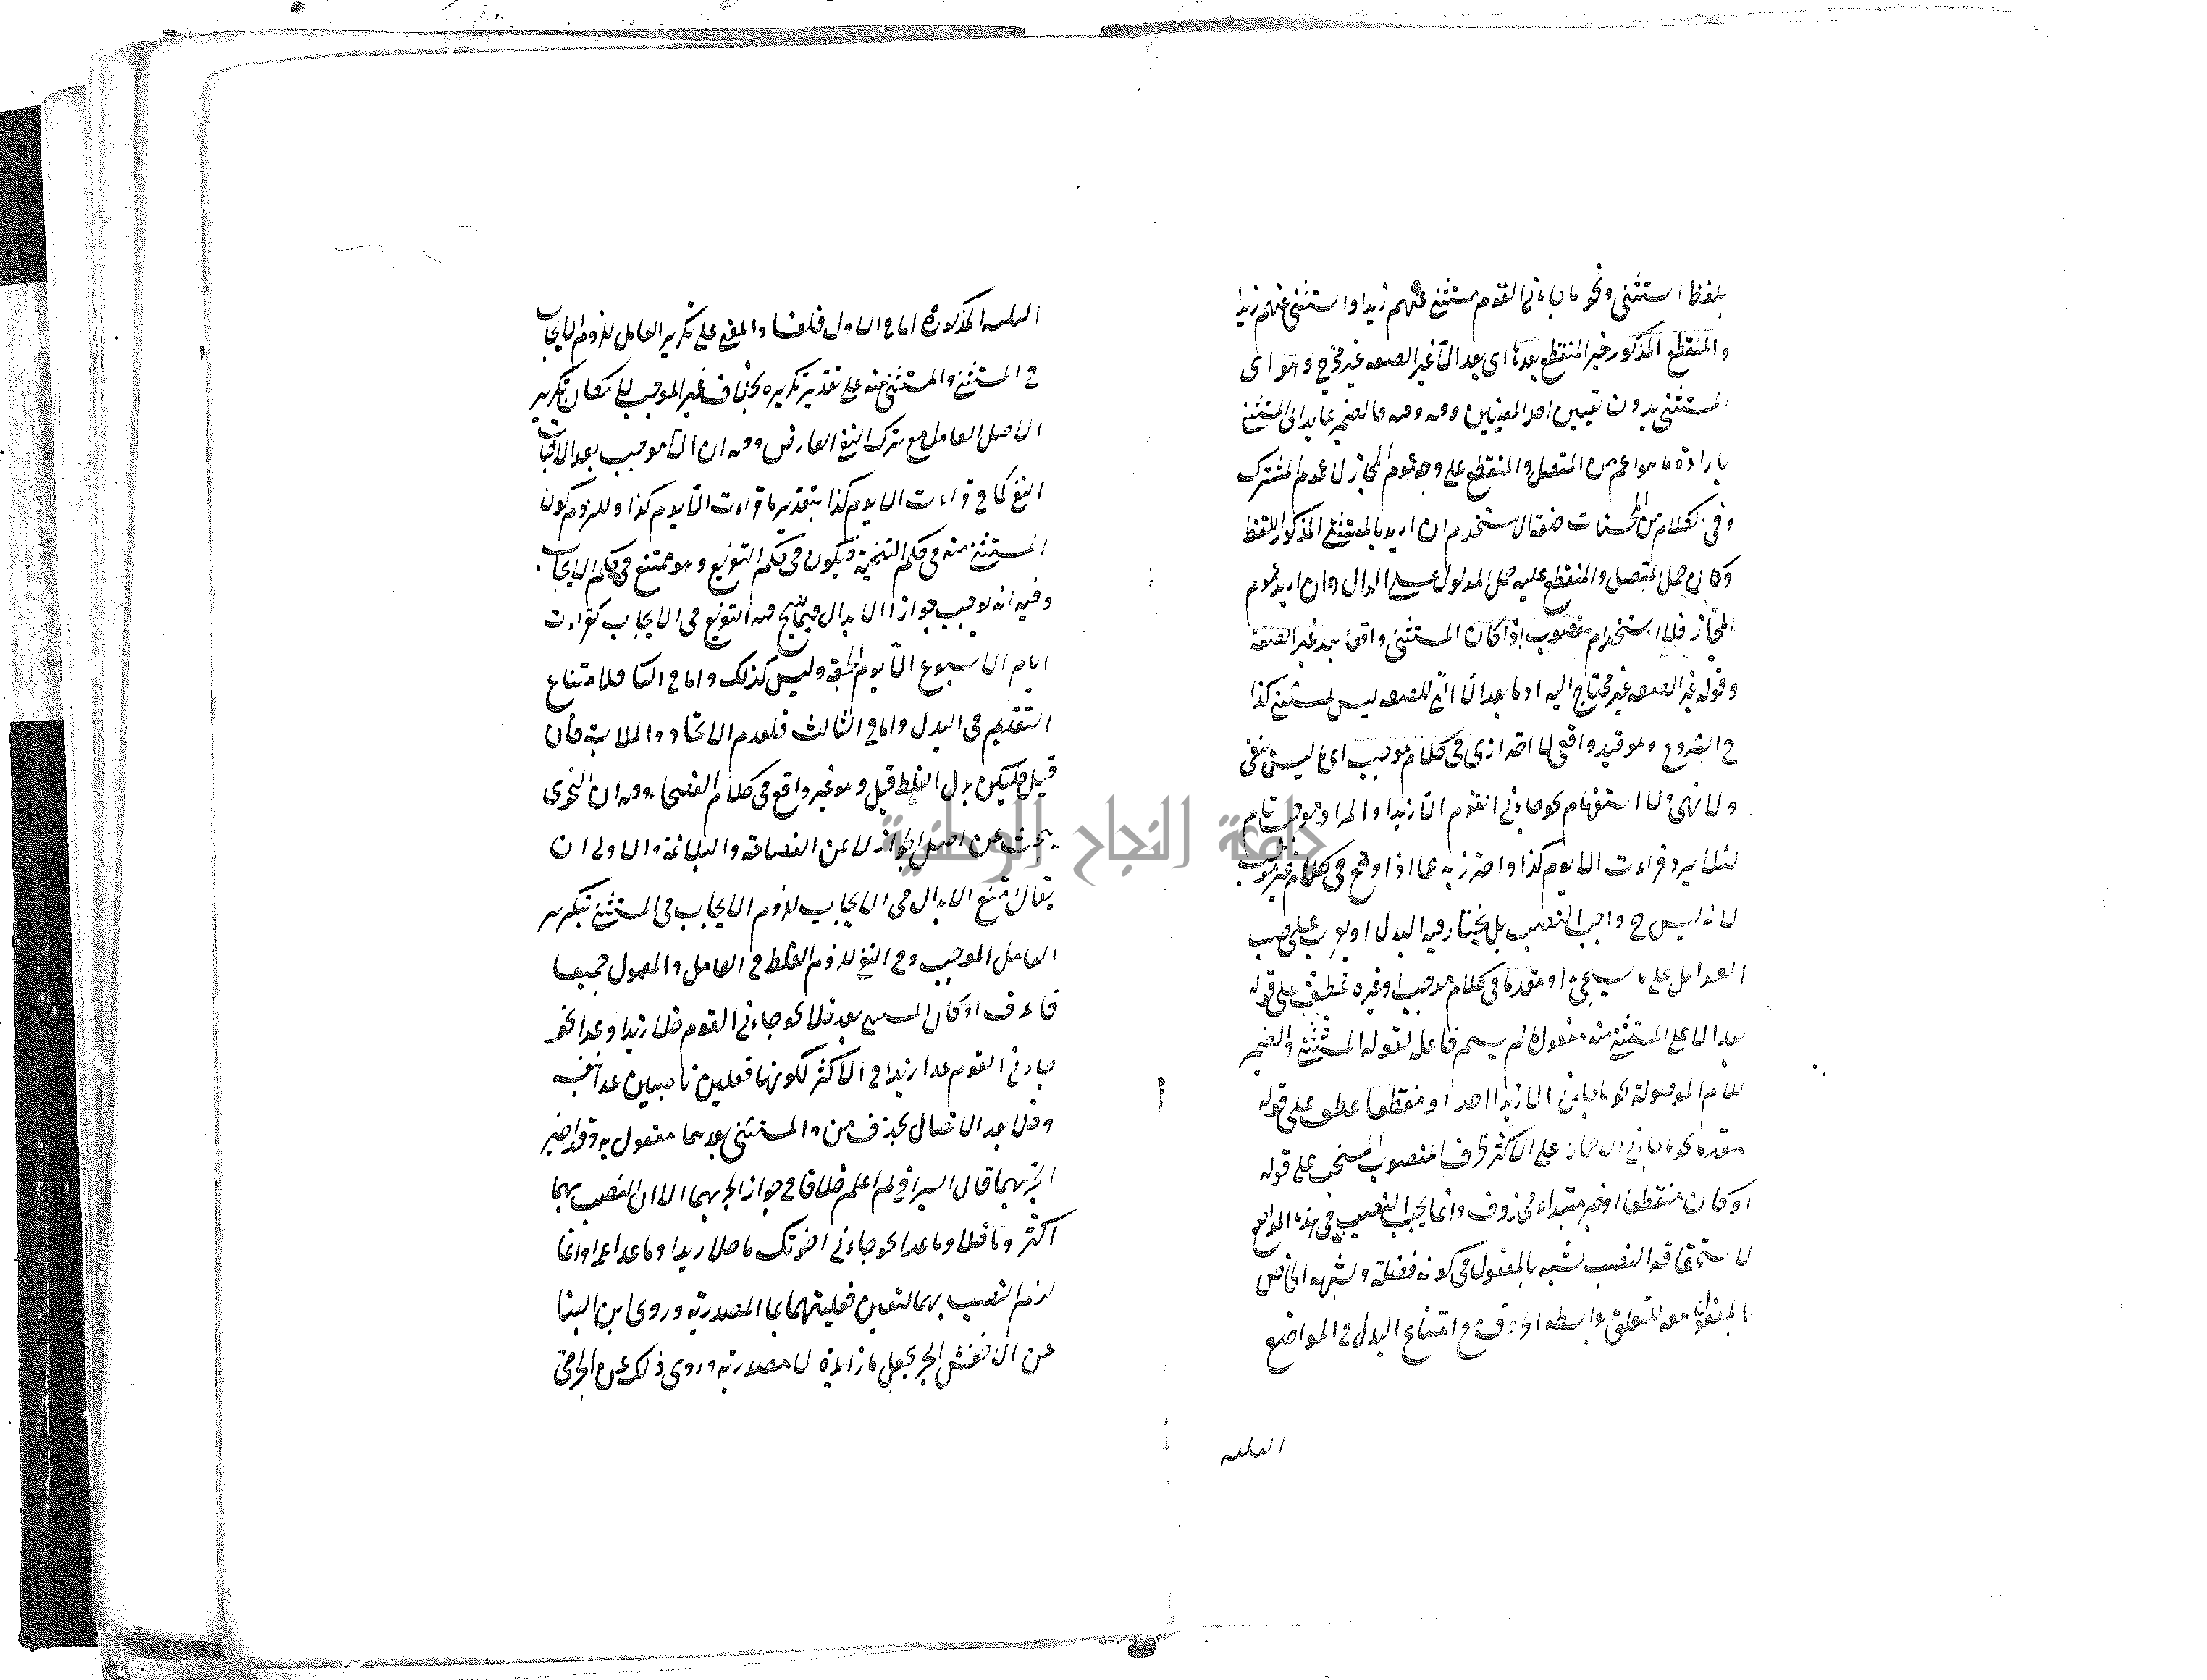 بلفظ استثنى ونحو ما جاءني القوم مستثنى عنهم زيدا واستثنى عنهم زيدا
والمنقطع المذكور خبر المنقطع بعدها اى بعد الّا غير الصفه غير مخرج وهو اى
المستثنى بدون تعيين احد المعنيين وفيه فالضمير عايد الى المستثنى
بارادة ما هو اعم من المتصل والمنقطع على وجه عموم المجاز لا عموم المشترك
وفى الكلام من المحسنات صنعة الاستخدام ان اريد بالمستثنى المذكور اللفظ
وكان حمل المتصل والمنقطع عليه حمل المدلول على الدال وان اريد عموم
المجاز فلا استخدام منصوب اذا كان المستثنى واقعا بعد غير الصفة
وقوله غير الصفه غير محتاج اليه اذ ما بعد الّا التى للصفه ليس بمستثنى كذا
فى الشروح وهو قيد واقعى لا احترازى فى كلام موجب اى ما ليس بنفى
ولا نهى ولا استفهام نحو جاءنى القوم الّا زيدا والمراد موجب تام
لئلا يرد قراءت الا يوم كذا واحترز به عما اذا وقع فى كلام غير موجب
لانه ليس ح واجب النصب بل يختار فيه البدل او يعرب على حسب
العوامل على ما سيجئ او مقدما فى كلام موجب او غيره عطف على قوله
بعد الا على المستثنى منه مفعول ما لم يسم فاعله لقوله المستثنى والضمير
للام الموصولة نحو ما جاءنى الا زيدا احد او منقطعا عطف على قوله
مقدما نحو ما جاءنى احد الا حمارا على الاكثر ظرف المنصوب المنسحب على قوله
او كان منقطعا او خبر مبتداء محذوف وانما يجب النصب فى هذه المواضع
لاستحقاقه النصب لشبه بالمفعول فى كونه فضلة ولشبهه الخاص
بالمفعول معه للتعلق بواسطه الحرف مع امتناع البدل فى المواضع
الثلثه
الثلثه المذكورة اما فى الاول فلفساد المعنى على تكرير العامل للزوم الايجاب
فى المستثنى والمستثنى منه على تقدير تكريره بخلاف غير الموجب لامكان تكرير
الاصل العامل مع ترك النفى العارض وفيه ان الّا موجب بعد الاثبات
النفى كما فى قراءت الا يوم كذا بتقدير ما قراءت الّا يوم كذا وللزوم كون
المستثنى منه فى حكم التنحية فيكون فى حكم التفريغ وهو ممتنع فى حكم الايجاب
وفيه انه يوجب جواز الابدال فيما يصح فيه التفريغ فى الايجاب كقراءت
ايام الاسبوع الّا يوم الجمعة وليس كذلك واما فى الثانى فلامتناع
التقديم فى البدل واما فى الثالث فلعدم الاتحاد والملابسة فان
قيل فليكن بدل الغلط قيل وهو غير واقع فى كلام الفصحاء وفيه ان النحوى
يبحث عن اصل الجواز لا عن الفصاحة والبلاغة والاولى ان
يقال امتنع الابدال فى الايجاب للزوم الايجاب فى المستثنى بتكرير
العامل الموجب وفى النفى للزوم الغلط فى العامل والمعمول جميعا
فاعرف او كان المستثنى بعد خلا نحو جاءنى القوم خلا زيدا وعدا نحو
جاءنى القوم عدا زيدا فى الاكثر لكونهما فعلين ناصبين
وخلا بعد الاتصال بحذف من والمستثنى بعدهما مفعول به وقد اجيز
الجر بهما قال السيرافى لم اعلم خلافا فى جواز الجر بهما الا ان النصب بهما
اكثر وما خلا وما عدا نحو جاءنى اخوتك ما خلا زيدا وما عدا عمرا وانما
لزم النصب بهما لتعين فعليتهما بما المصدرية وروى ابن البنا
عن الاخفش الجر بجعل ما زائدة لا مصدرية وروى ذلك عن الجرمى
جامعة النجاح الوطنية